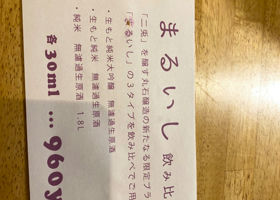 まるいし 飲み比
「二兎」を醸す丸石醸造の新たなる限定ブラ
「まるいし」の3タイプを飲み比べでご用
・生もと純米大吟醸 無濾過生原酒
・生もと純米 無濾過生原酒
・純米 無濾過生原酒 1.8L
各30ml … 960y